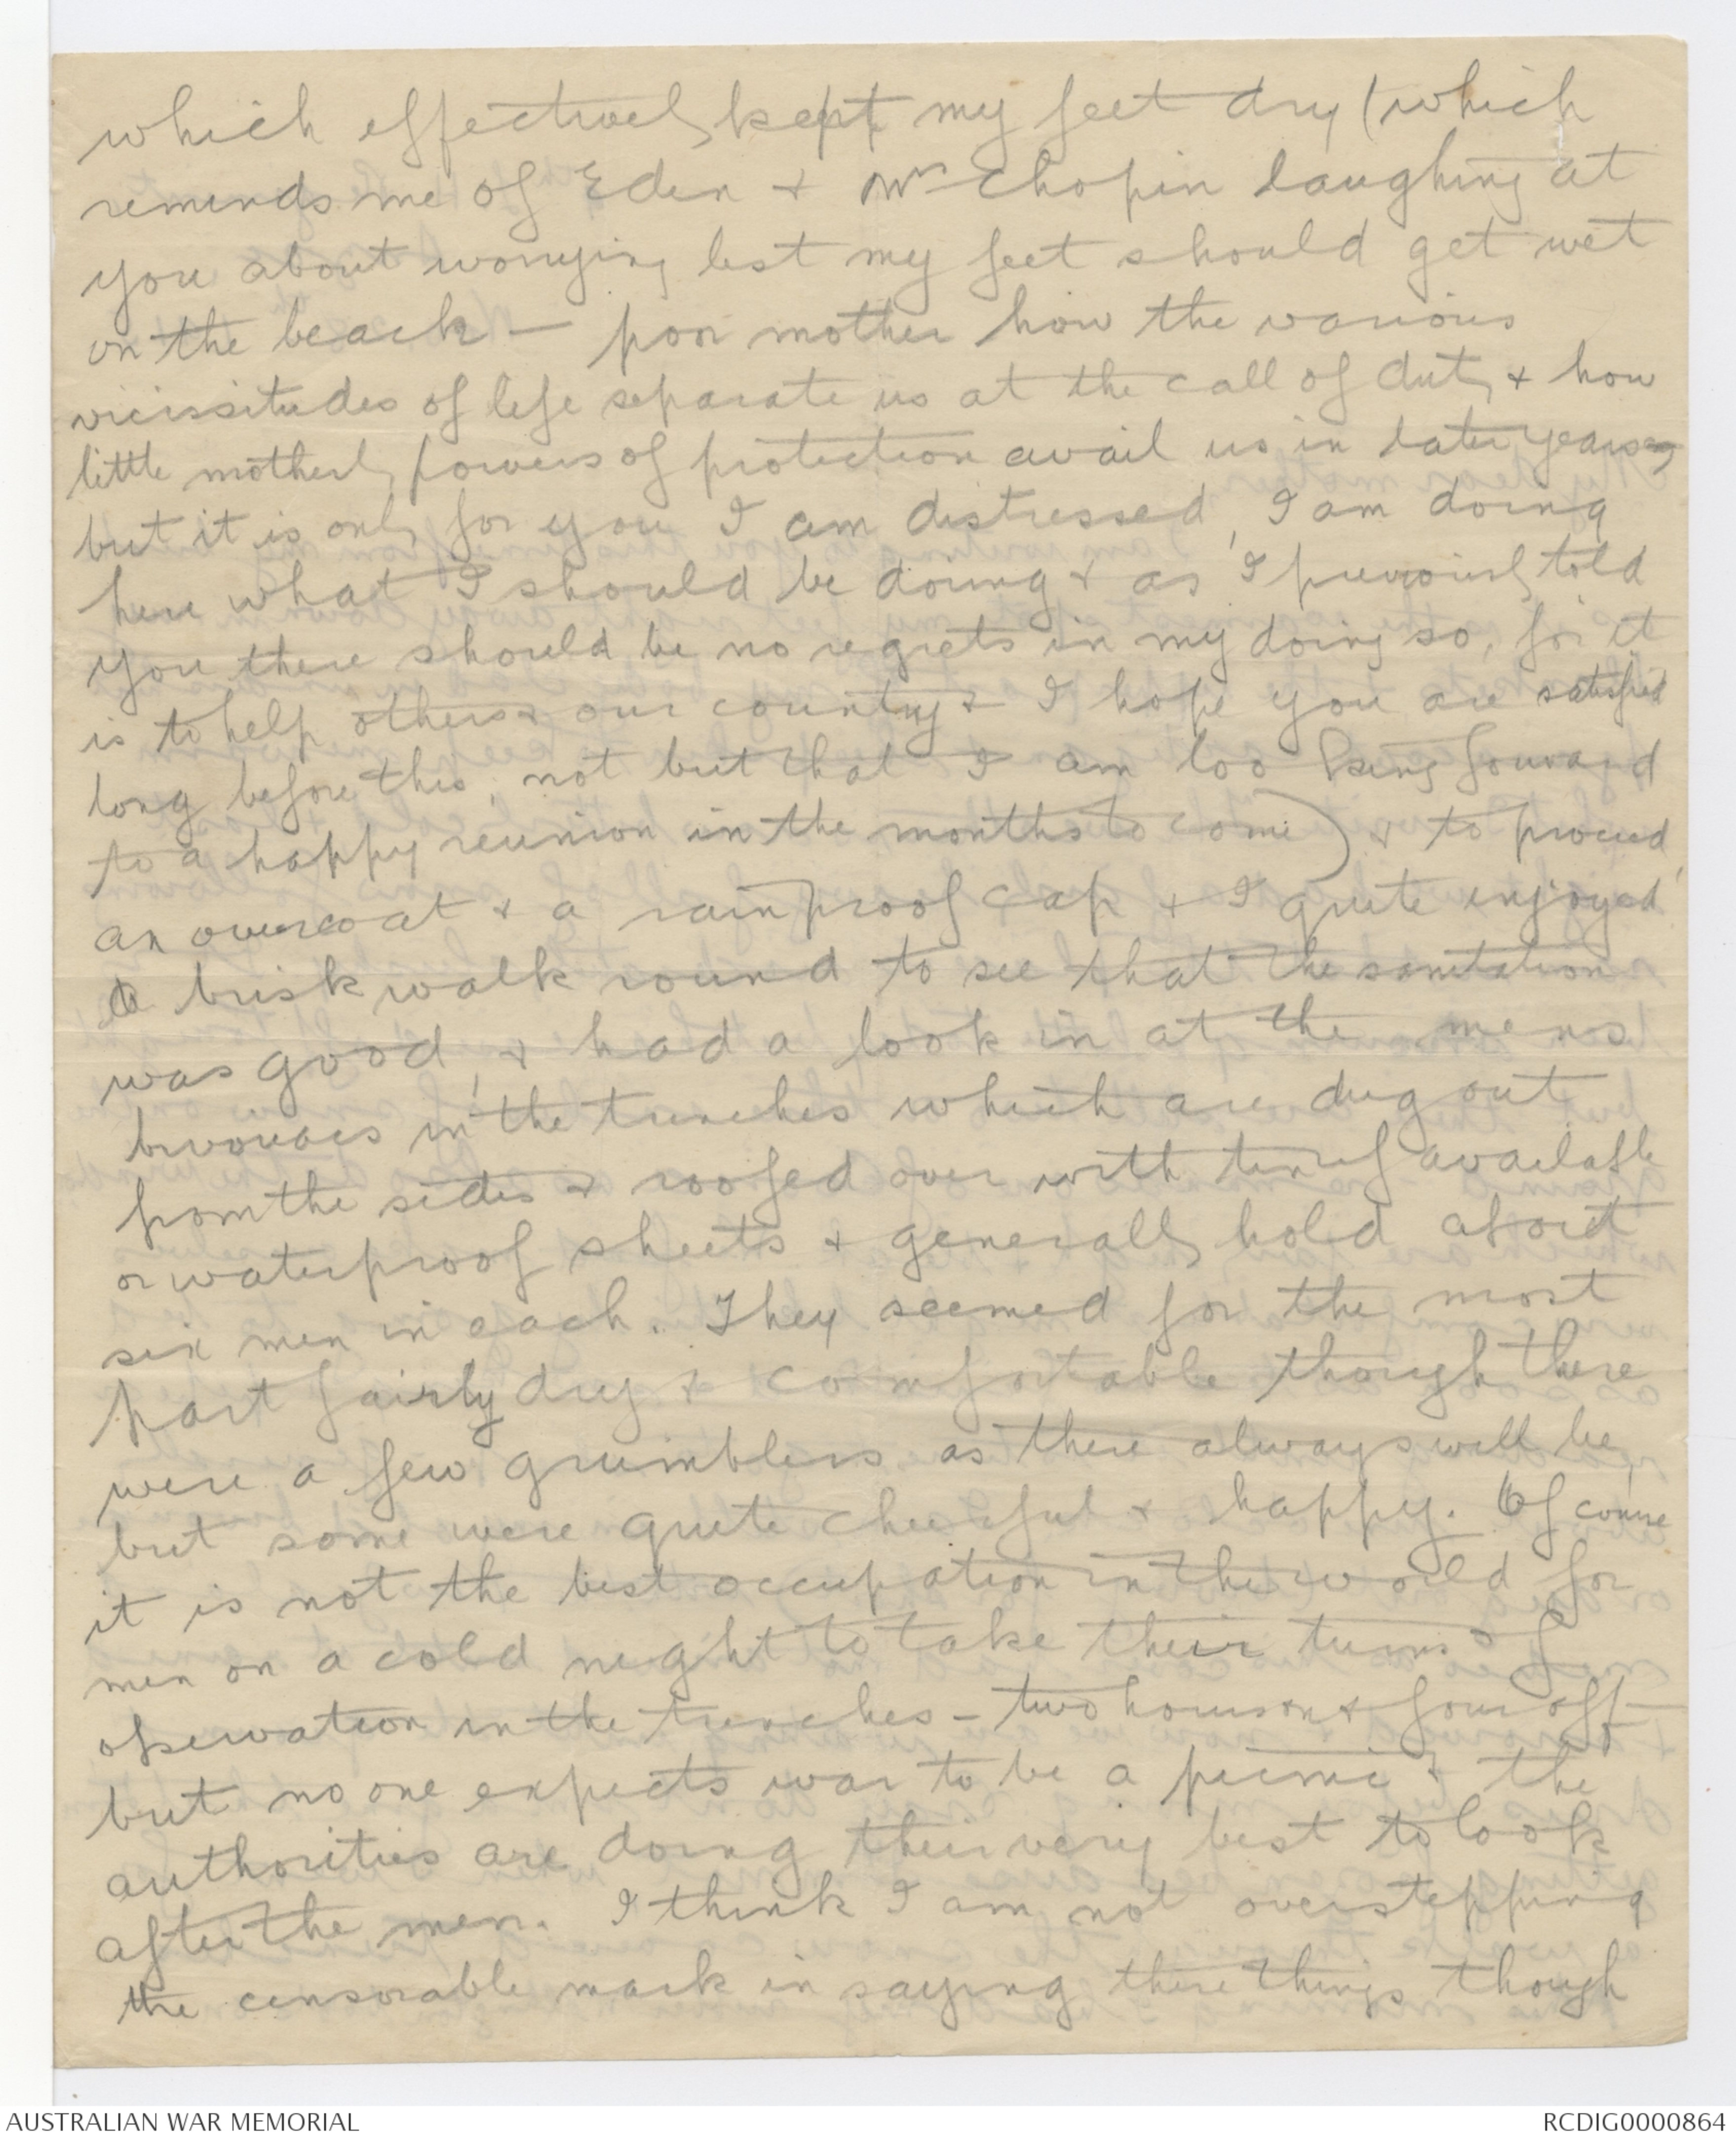 which effectively kept my feet dry (which
reminds me of Eden & Mrs Chopin laughing at
you about worrying lest my feet should get wet
on the beach – poor mother how the various
vicissitudes of life separate us at the call of duty & how
little motherly powers of protection avail us in later years,
but it is only for you I am distressed, I am doing
here what I should be doing & as I previously told
you there should be no regrets in my doing so, for it
is to help others & our country & I hope you are satisfied
long before this, not but that I am too looking forward
to a happy reunion in the months to come) & to proceed,
an overcoat & a rainproof cap & I quite enjoyed
a brisk walk round to see that the sanitation
was good, & had a look in at the mens
bivouacs in the trenches which are dug out
from the sides & roofed over with tin if available
or waterproof sheets & generally hold about
six men in each. They seemed for the most
part fairly dry & comfortable though there
were a few grumblers as there always will be,
but some were quite cheerful & happy. Of course
it is not the best occupation in the world for
men on a cold night to take their turns of
observation in the trenches – two hours on & four off –
but no one expects war to be a picnic & the
authorities are doing their very best to look
after the men. I think I am not overstepping
the censorable mark in saying these things though
AUSTRALIAN WAR MEMORIAL
RCDIG0000864